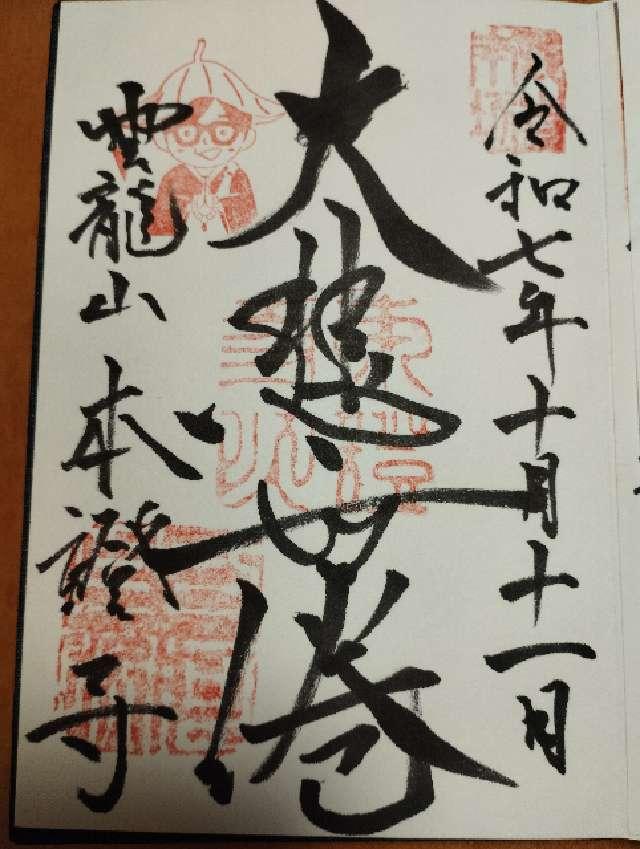 令和七年十月十一日
大悲無倦
雲龍山 本證寺